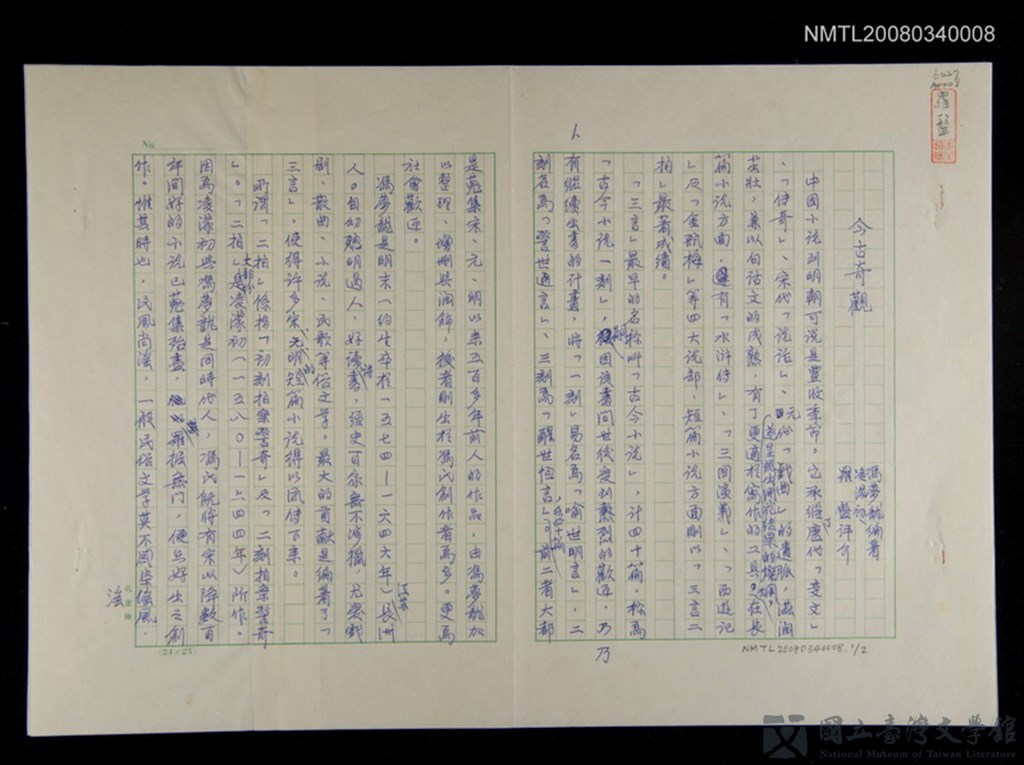 NMTL20080340008
羅盤
今古奇觀
馮夢龍編著
凌濛初
羅盤評介
中國小說到明朝可說是豐收季節。它承繼唐代「變文」
、「傳奇」、宋代「說話」、元俗「戲曲」的遺脈，滋潤
茁壯，兼以白話文的成熟，有了更適於寫作的工具，在長
篇小說方面，還有「水滸傳」、「三國演義」、「西遊記
」及「金瓶梅」等四大說部，短篇小說方面則以「三言二
拍」最著成績。
「三言」最早的名稱叫「古今小說」，計四十篇，稱為
「古今小說一刻」，因該書問世後受到熱烈的歡迎，乃
有繼續出書的計畫，將「一刻」易名為「喻世明言」，二
刻名為「警世通言」、三刻為「醒世恒言」，前二者大都
是蒐集宋、元、明以來五百多年前人的作品，由馮夢龍加
以整理、增刪與潤飾，後者則出於馮氏創作者為多。更為
社會歡迎。
馮夢龍是明末（約生卒於一五七四－一六四六年）江蘇長洲
人。自幼聰明過人，好讀詩書，經史百家無不涉獵，尤愛戲
劇、散曲、小說、民歌等俗文學，最大的貢獻是編著了「
三言」，使得許多宋、元、明的短篇小說得以流傳下來。
所謂「二拍」係指「初刻拍案驚奇」及「二刻拍案驚奇
」。「二拍」大都係凌濛初（一五八０－一六四四年）所作。
因為凌濛初與馮夢龍是同時代人，馮氏既將有宋以降數百
年間好的小說已蒐集殆盡，羅掘無門，便只好出之創
作。惟其時也，民風尚淫，一般民俗文學莫不風染綺風。
淫
No
(24×25)
NMTL20080340008. 1/2
國立臺灣文學館
National Museum of Taiwan Literature